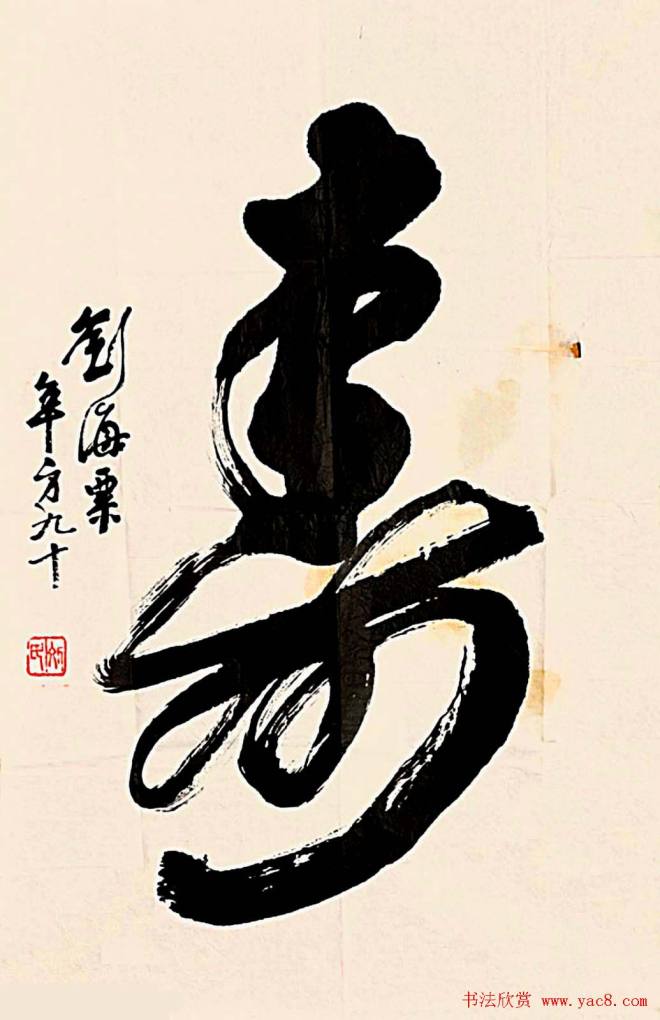 寿
劉海粟
年方九十
劉氏
书法欣赏 www.yac8.com